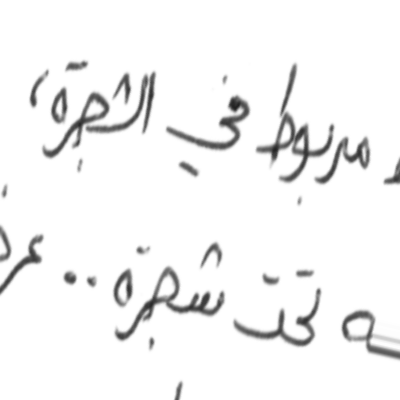 مربوط في الشجرة،
تحت شجرة ..